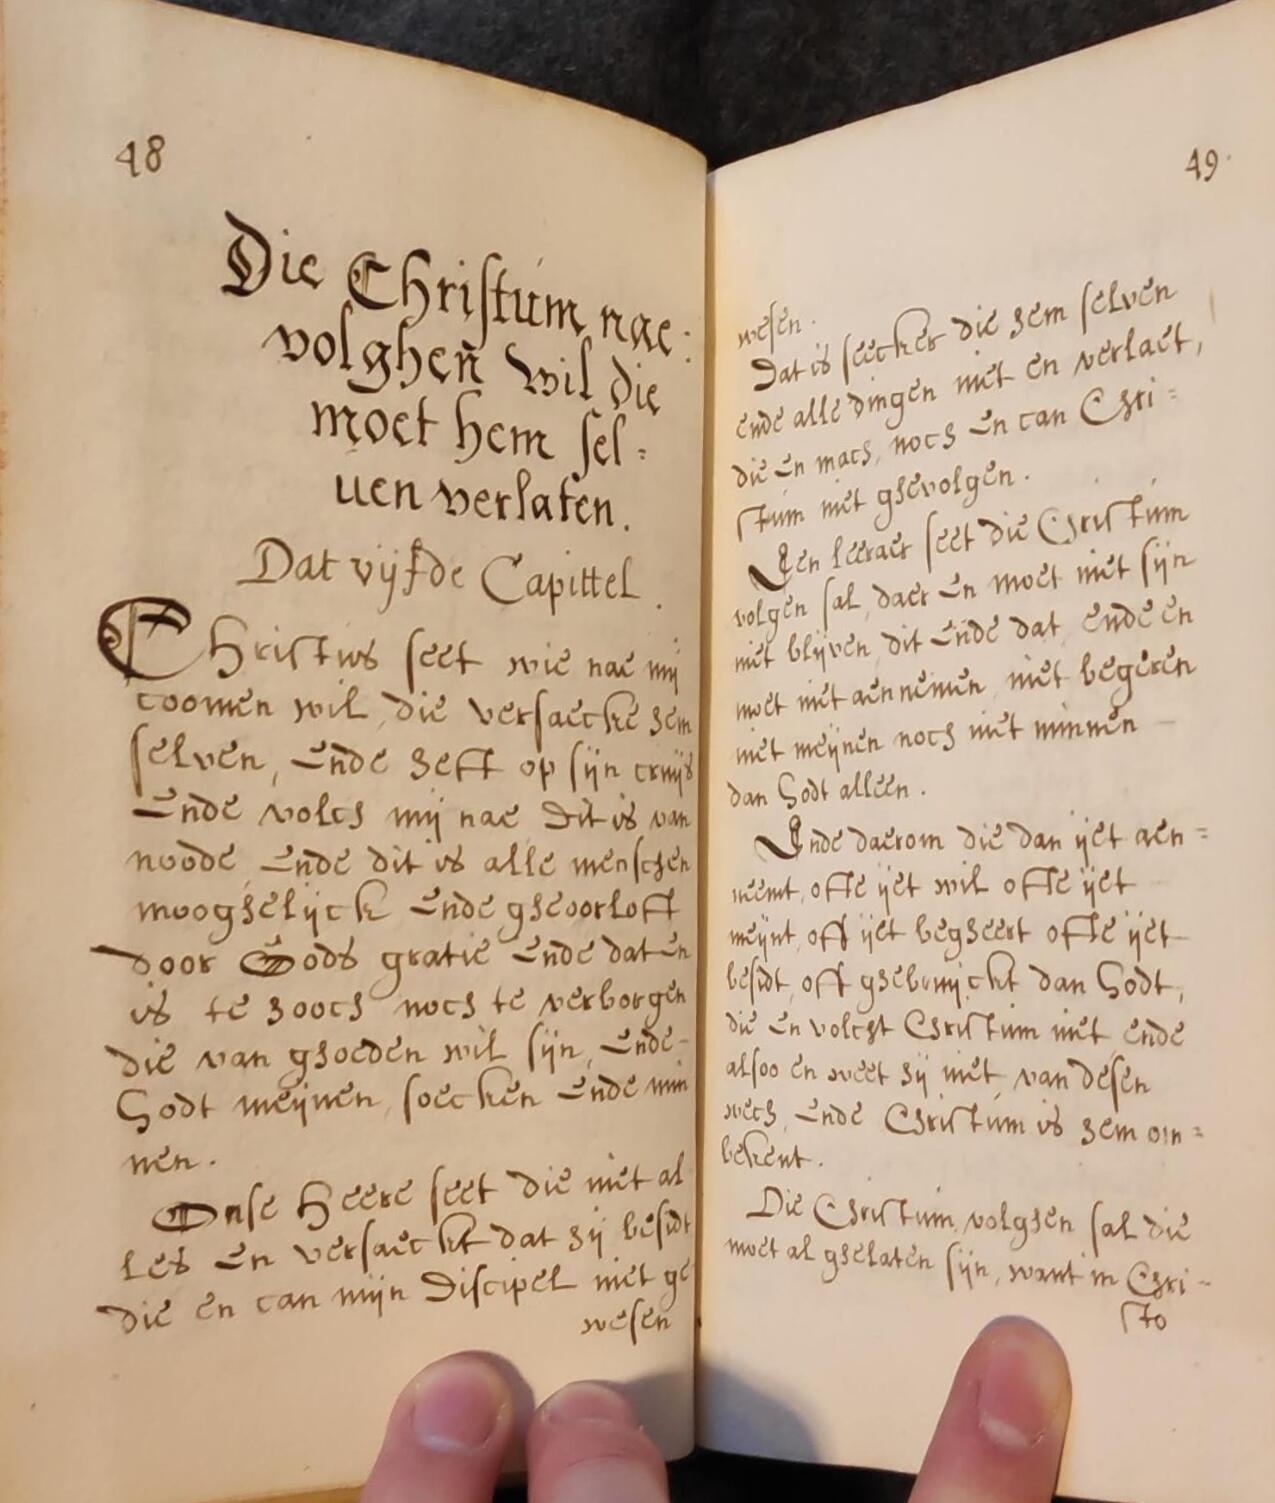 48
Die Christum nae:
volgheñ wil die
moet hem sel:
uen verlaten.
Dat vijfde Capittel.
Christus seet wie nae mij
coomen wil, die versaecke hem
selven, ende heft op sijn cruijs
ende volch mij nae dit is van
noode, ende dit is alle menschen
mooghelijck ende gheoorloft
door Gods gratie ende dat en
is te hooch noch te verborgen
die van ghoeden wil sijn, ende-
Godt meijnen, soecken ende min
nen.
Onse Heere seet die niet al
les en versaeckt dat hij besidt
die en can mijn discipel niet ge
wesen
49
wesen.
Dat is seecker die hem selven
ende alle dingen niet en verlaet,
die en mach, noch en can Chri=
stum niet ghevolgen.
Een leeraer seet die Christum
volgen sal, daer en moet niet sijn
niet blijven, dit ende dat, ende en
moet niet aennemen, niet begeren
niet meijnen noch niet minnen -
dan Godt alleen.
Ende daerom die dan ijet aen=
neemt, ofte ijet wil ofte ijet
meijnt, off ijet begheert ofte ijet-
besidt, off ghebruijckt dan Godt,
die en volcht Christum niet ende
alsoo en weet hij niet van desen
wech, ende Christum is hem on=
bekent.
Die Christum volghen sal die
moet al ghelaten sijn, want in Chri-
sto